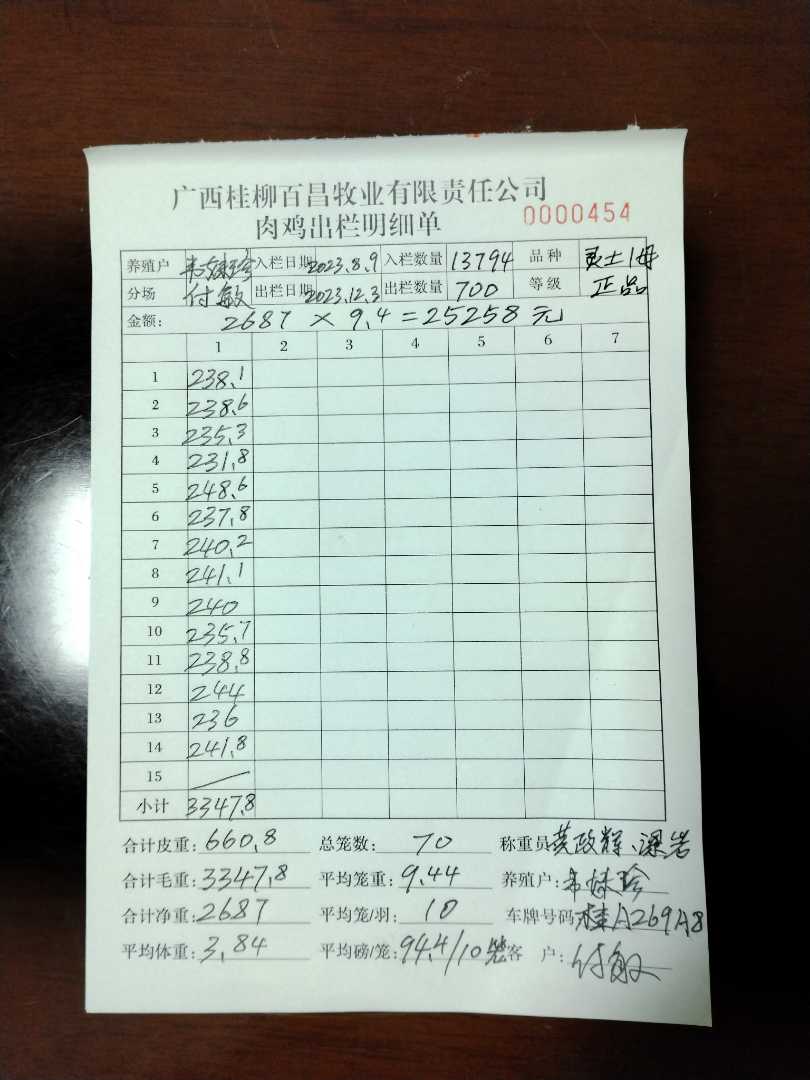 广西桂柳百昌牧业有限责任公司
肉鸡出栏明细单 0000454
养殖户 韦妹珍 入栏日期 2023.8.9 入栏数量 13794 品种 灵土1母
分场 付敏 出栏日期 2023.12.3 出栏数量 700 等级 正品
金额: 2687 × 9.4 = 25258 元
1 2 3 4 5 6 7
1 238.1
2 238.6
3 235.3
4 231.8
5 248.6
6 237.8
7 240.2
8 241.1
9 240
10 235.7
11 238.8
12 244
13 236
14 241.8
15
小计 3347.8
合计皮重: 660.8 总笼数: 70 称重员 黄政辉、梁岩
合计毛重: 3347.8 平均笼重: 9.44 养殖户: 韦妹珍
合计净重: 2687 平均笼/羽: 10 车牌号码 桂A269A8
平均体重: 3.84 平均磅/笼: 94.4/10 客 户: 付敏